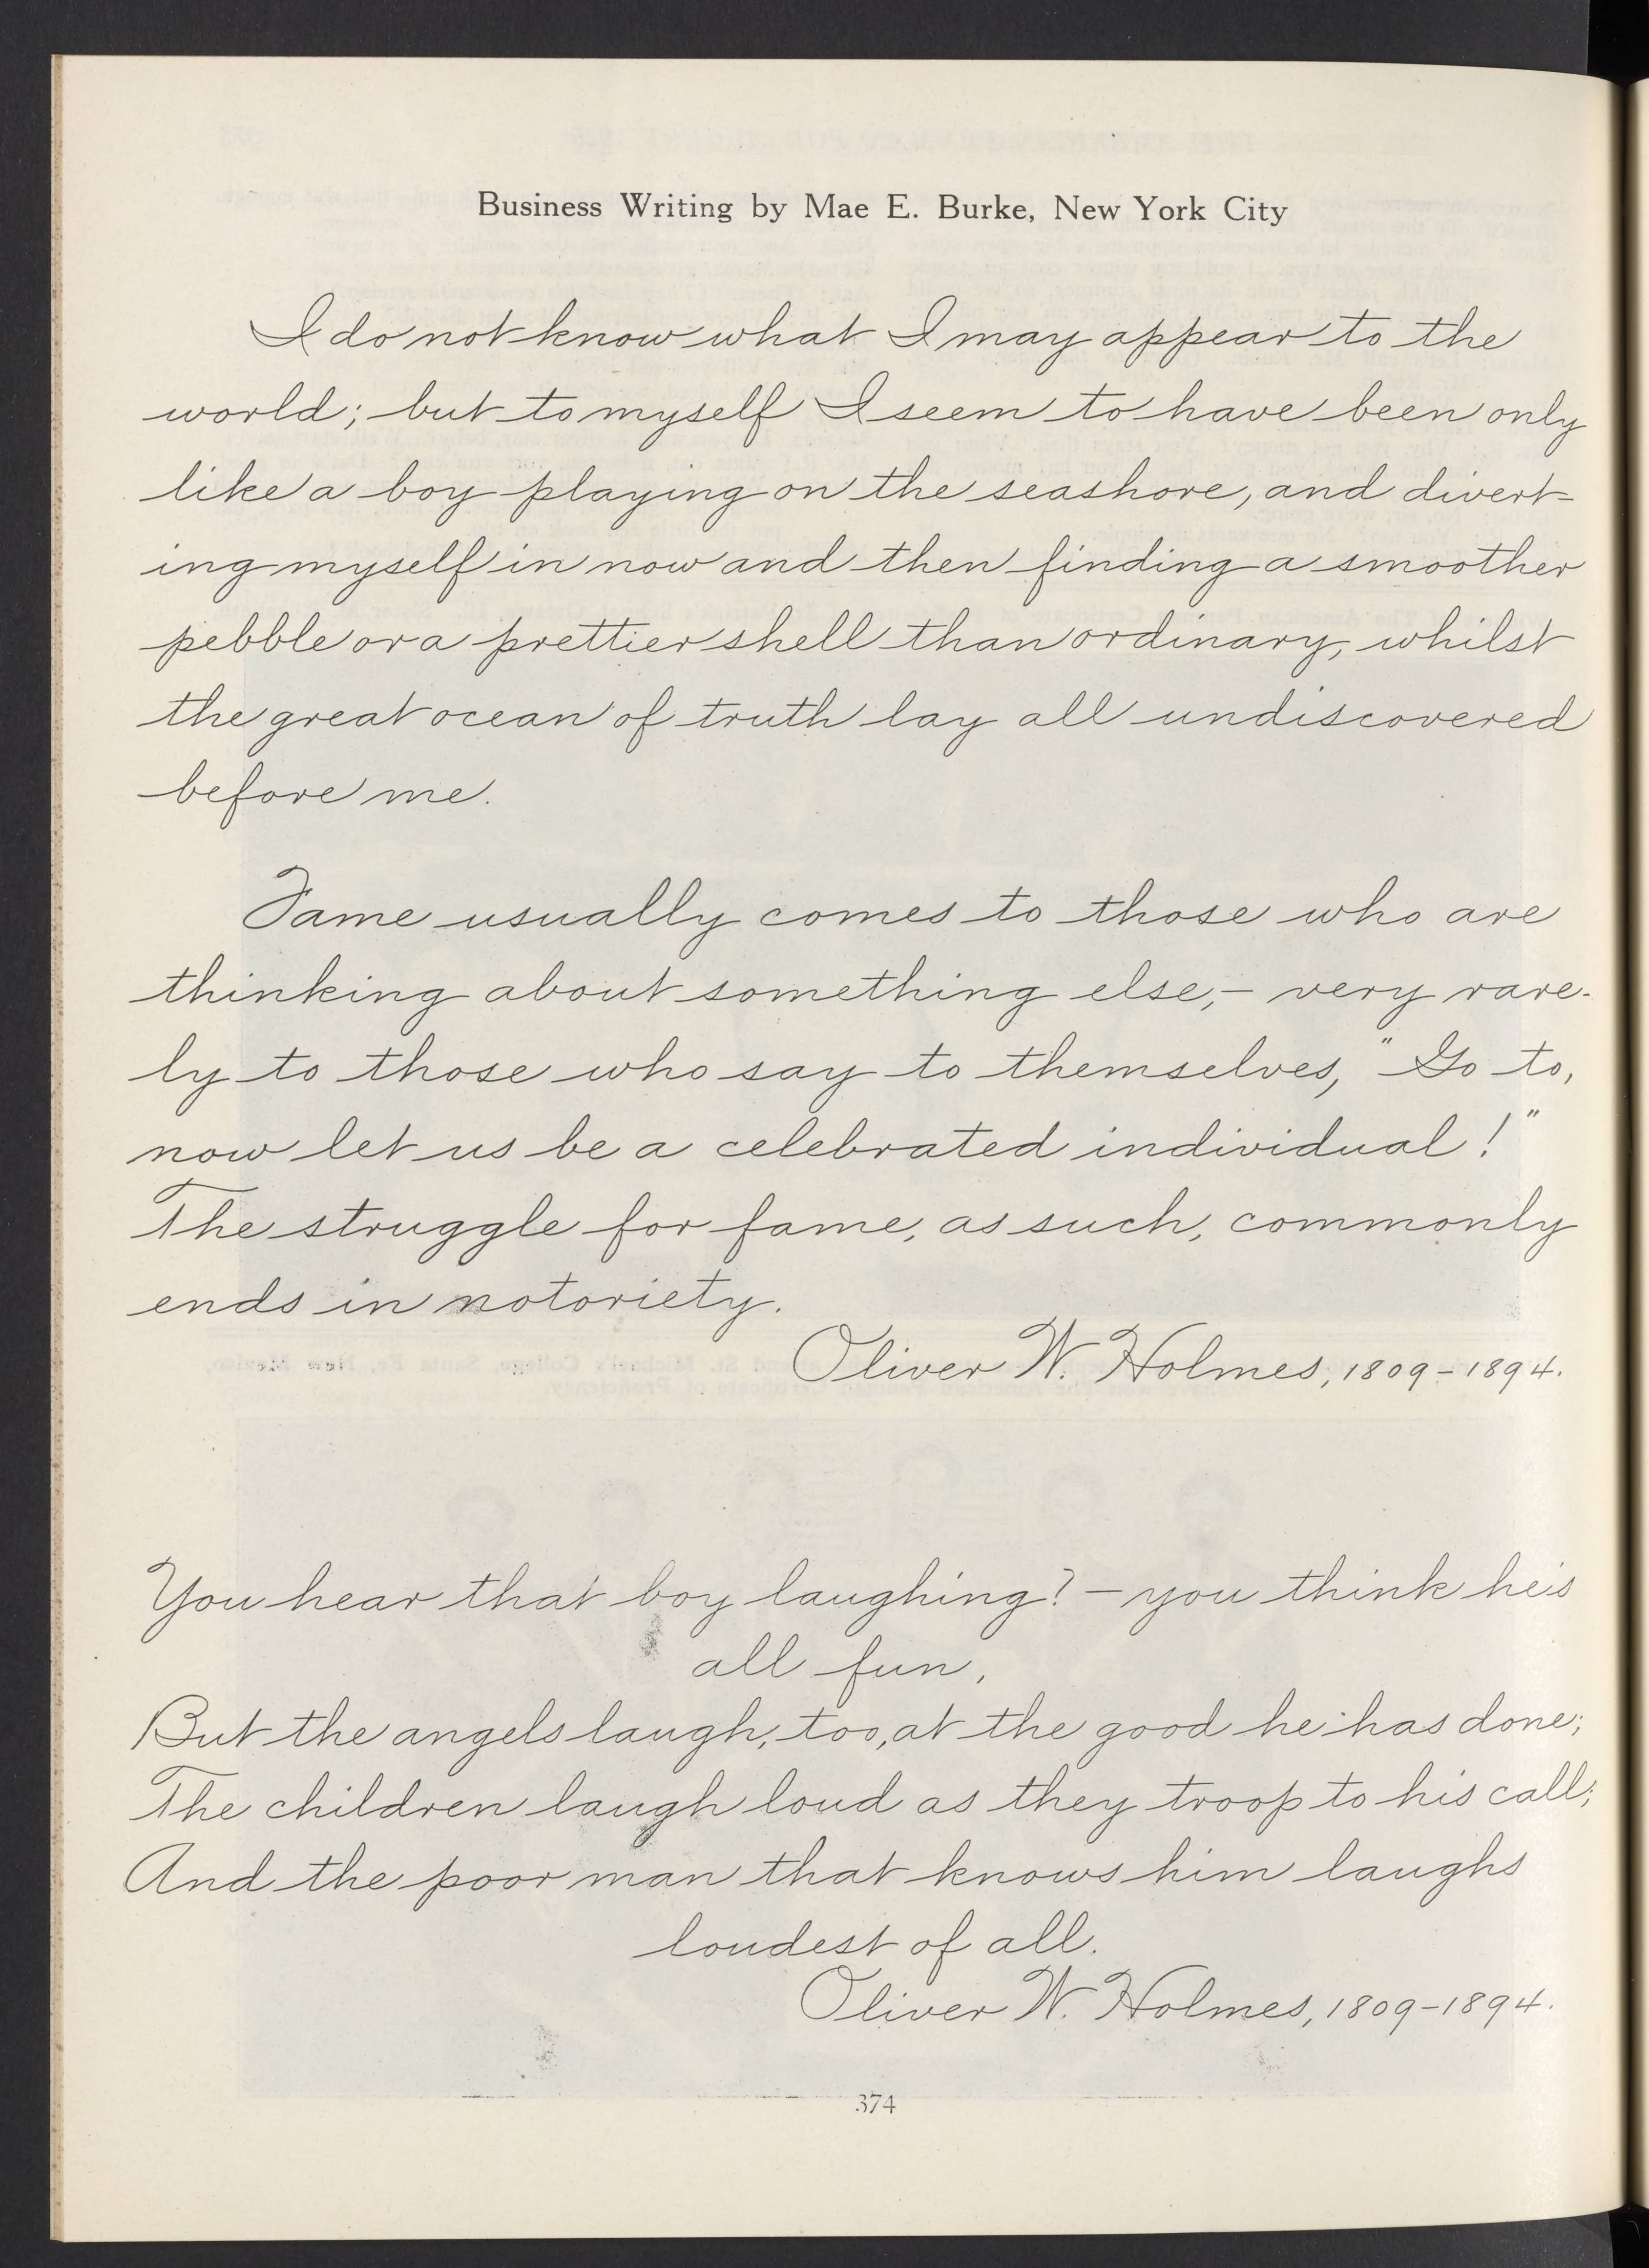 Business Writing by Mae E. Burke, New York City
I do not know what I may appear to the
world; but to myself I seem to have been only
like a boy playing on the seashore, and divert-
ing myself in now and then finding a smoother
pebble or a prettier shell than ordinary, whilst
the great ocean of truth lay all undiscovered
before me.
Fame usually comes to those who are
thinking about something else,- very rare-
ly to those who say to themselves, "Go to,
now let us be a celebrated individual!"
The struggle for fame, as such, commonly
ends in notoriety.
Oliver W. Holmes, 1809-1894.
You hear that boy laughing? - you think he's
all fun,
But the angels laugh, too, at the good he has done;
The children laugh loud as they troop to his call;
And the poor man that knows him laughs
loudest of all.
Oliver W. Holmes, 1809-1894.
374